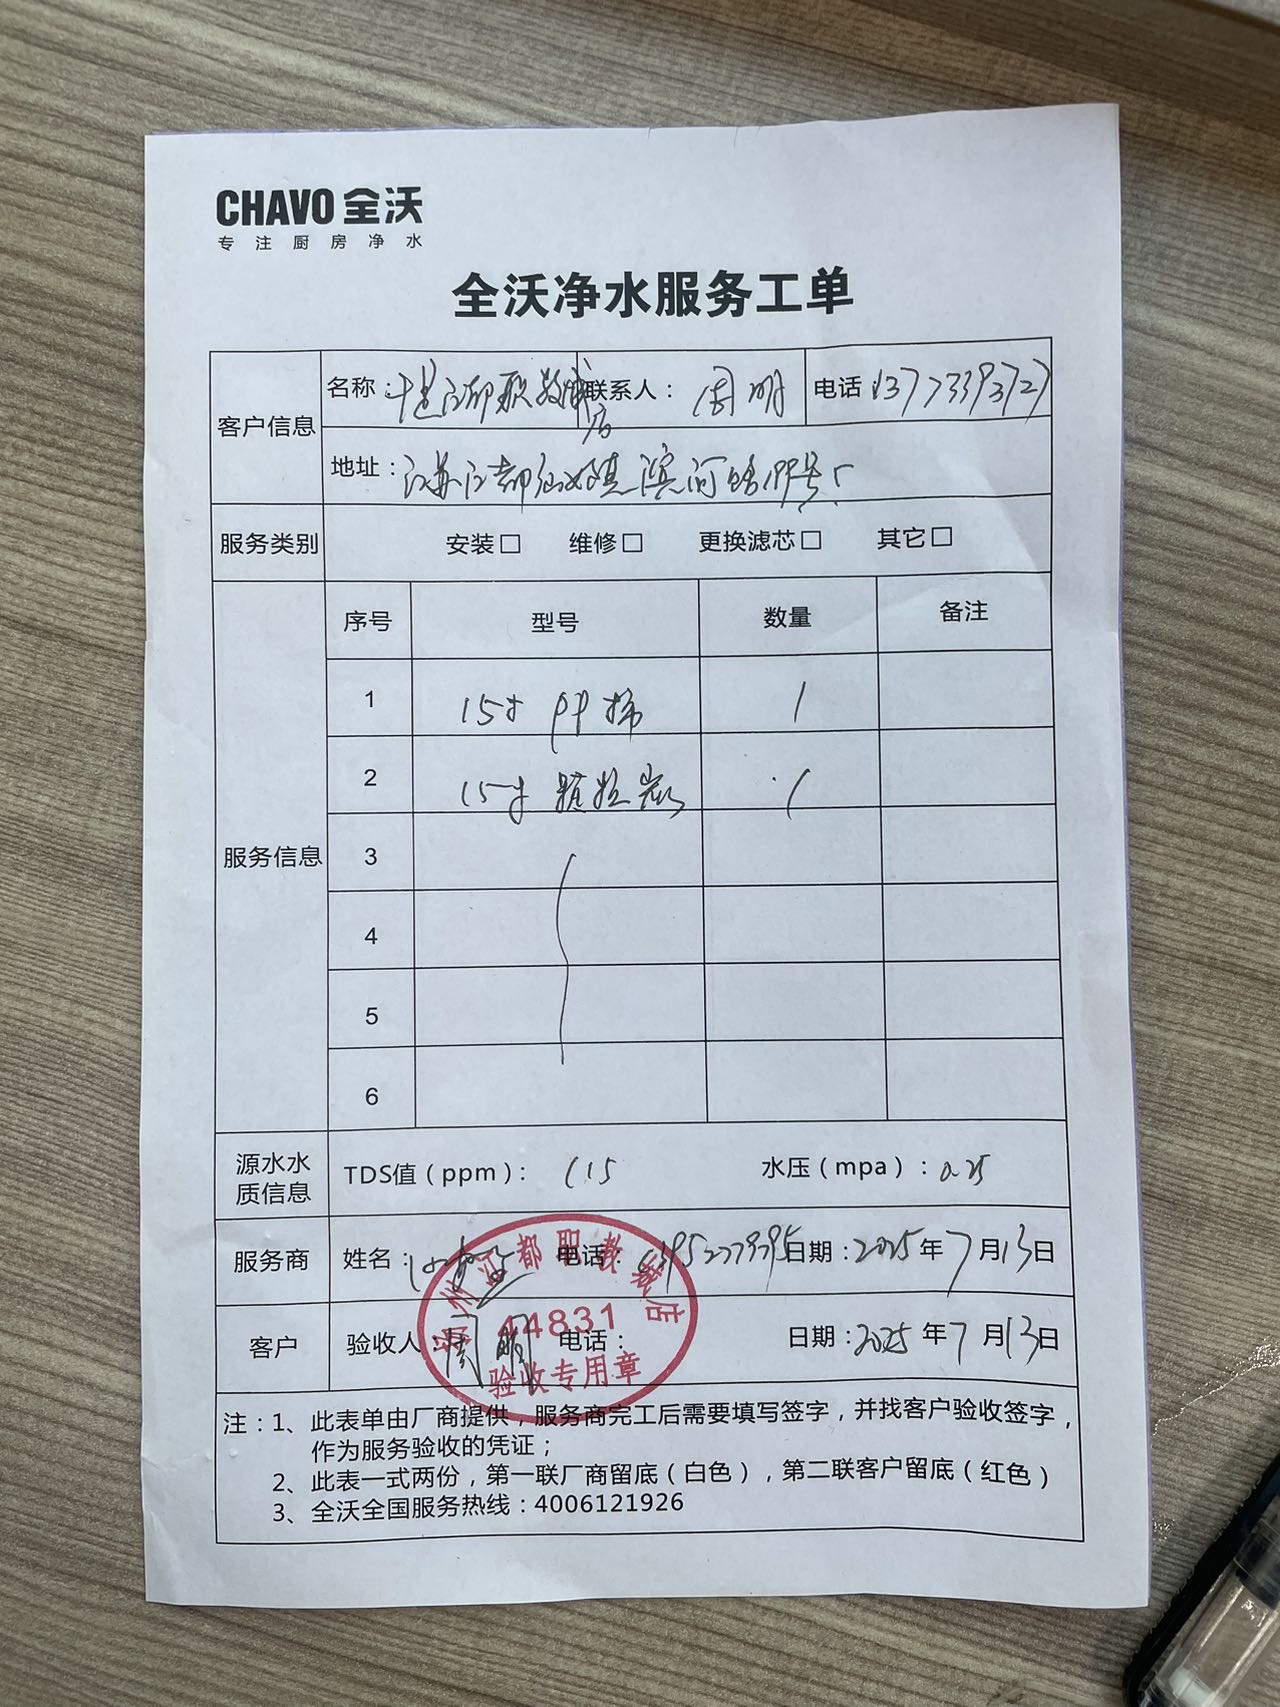 CHAVO 全沃
专注厨房净水
全沃净水服务工单
客户信息
名称：江都职教城店 联系人：周明 电话：13773393727
地址：江苏江都仙女镇滨河路199号
服务类别 安装□ 维修□ 更换滤芯□ 其它□
服务信息
序号 型号 数量 备注
1 15寸 PP棉 1
2 15寸 颗粒炭 1
3
4
5
6
源水水质信息 TDS值（ppm）：115 水压（mpa）：0.25
服务商 姓名： 电话：13952779795 日期：2025年7月13日
客户 验收人 周明 电话： 日期：2025年7月13日
扬州江都职教城店
44831
验收专用章
注：1、此表单由厂商提供，服务商完工后需要填写签字，并找客户验收签字，
作为服务验收的凭证；
2、此表一式两份，第一联厂商留底（白色），第二联客户留底（红色）
3、全沃全国服务热线：4006121926